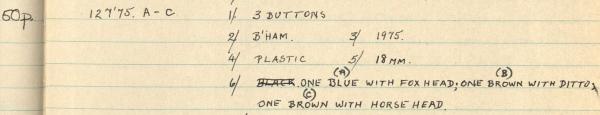 50p. 127'75. A-C 1/ 3 BUTTONS
2/ B'HAM. 3/ 1975.
4/ PLASTIC 5/ 18MM.
6/ BLACK. ONE (A) BLUE WITH FOX HEAD; ONE (B) BROWN WITH DITTO;
ONE (C) BROWN WITH HORSE HEAD.